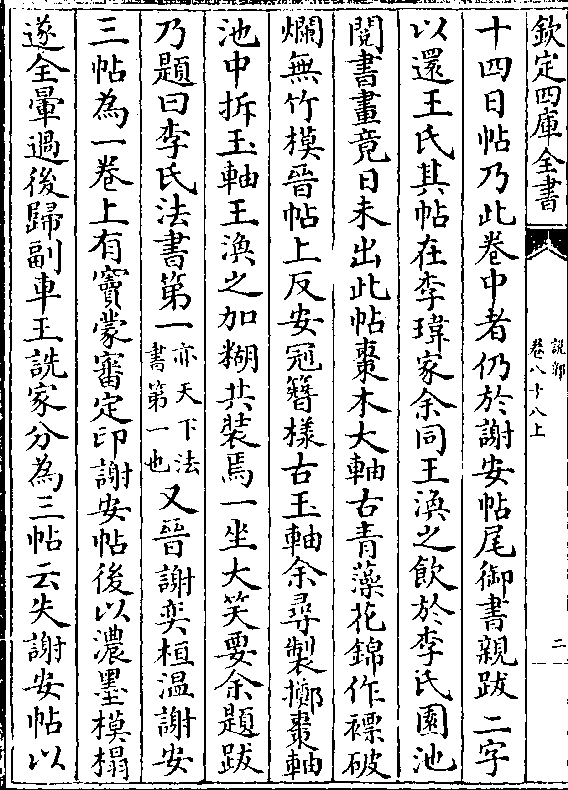 欽定四庫全書
說郛
卷八十八上
二
十四日帖乃此卷中者仍於謝安帖尾御書親跋二字
以還王氏其帖在李瑋家余同王渙之飲於李氏園池
閱書畫竟日未出此帖棗木大軸古青藻花錦作褾破
爛無竹模晉帖上反安冠簪様古玉軸余尋製擲棗軸
池中拆玉軸王渙之加糊共裝焉一坐大笑要余題跋
乃題曰李氏法書第一亦天下法書第一也又晉謝奕桓温謝安
三帖為一卷上有竇蒙審定印謝安帖後以濃墨模搨
遂全暈過後歸副車王詵家分為三帖云失謝安帖以